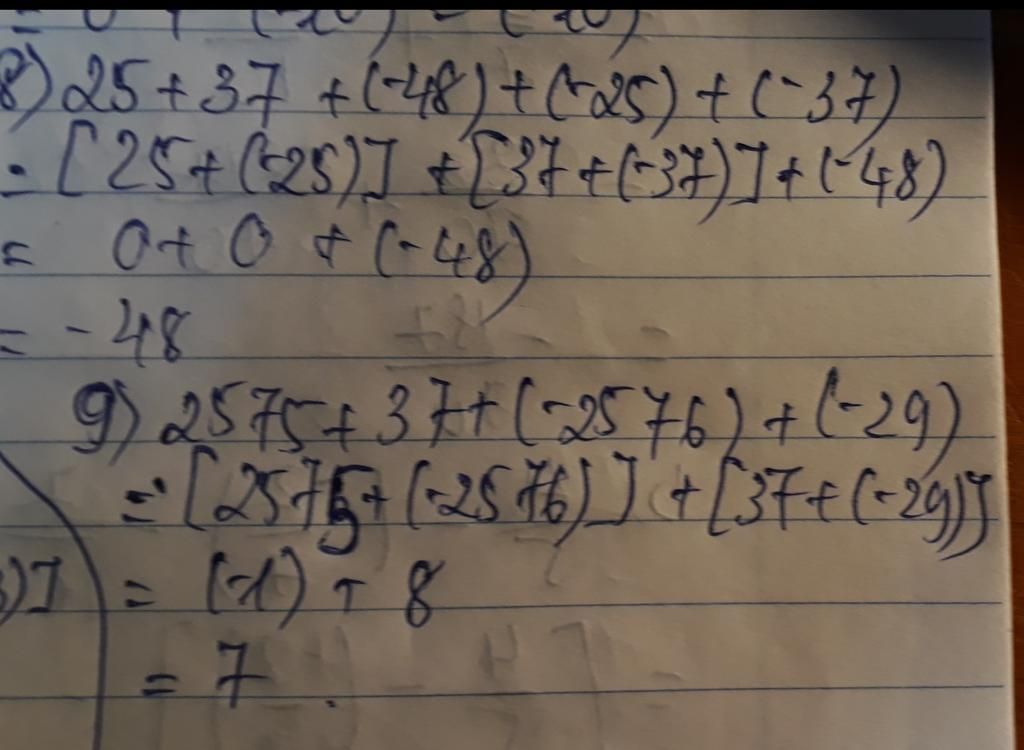 8) 25 + 37 + (-48) + (-25) + (-37)
= [25 + (-25)] + [37 + (-37)] + (-48)
= 0 + 0 + (-48)
= -48
9) 2575 + 37 + (-2576) + (-29)
= [2575 + (-2576)] + [37 + (-29)]
)] = (-1) + 8
= 7